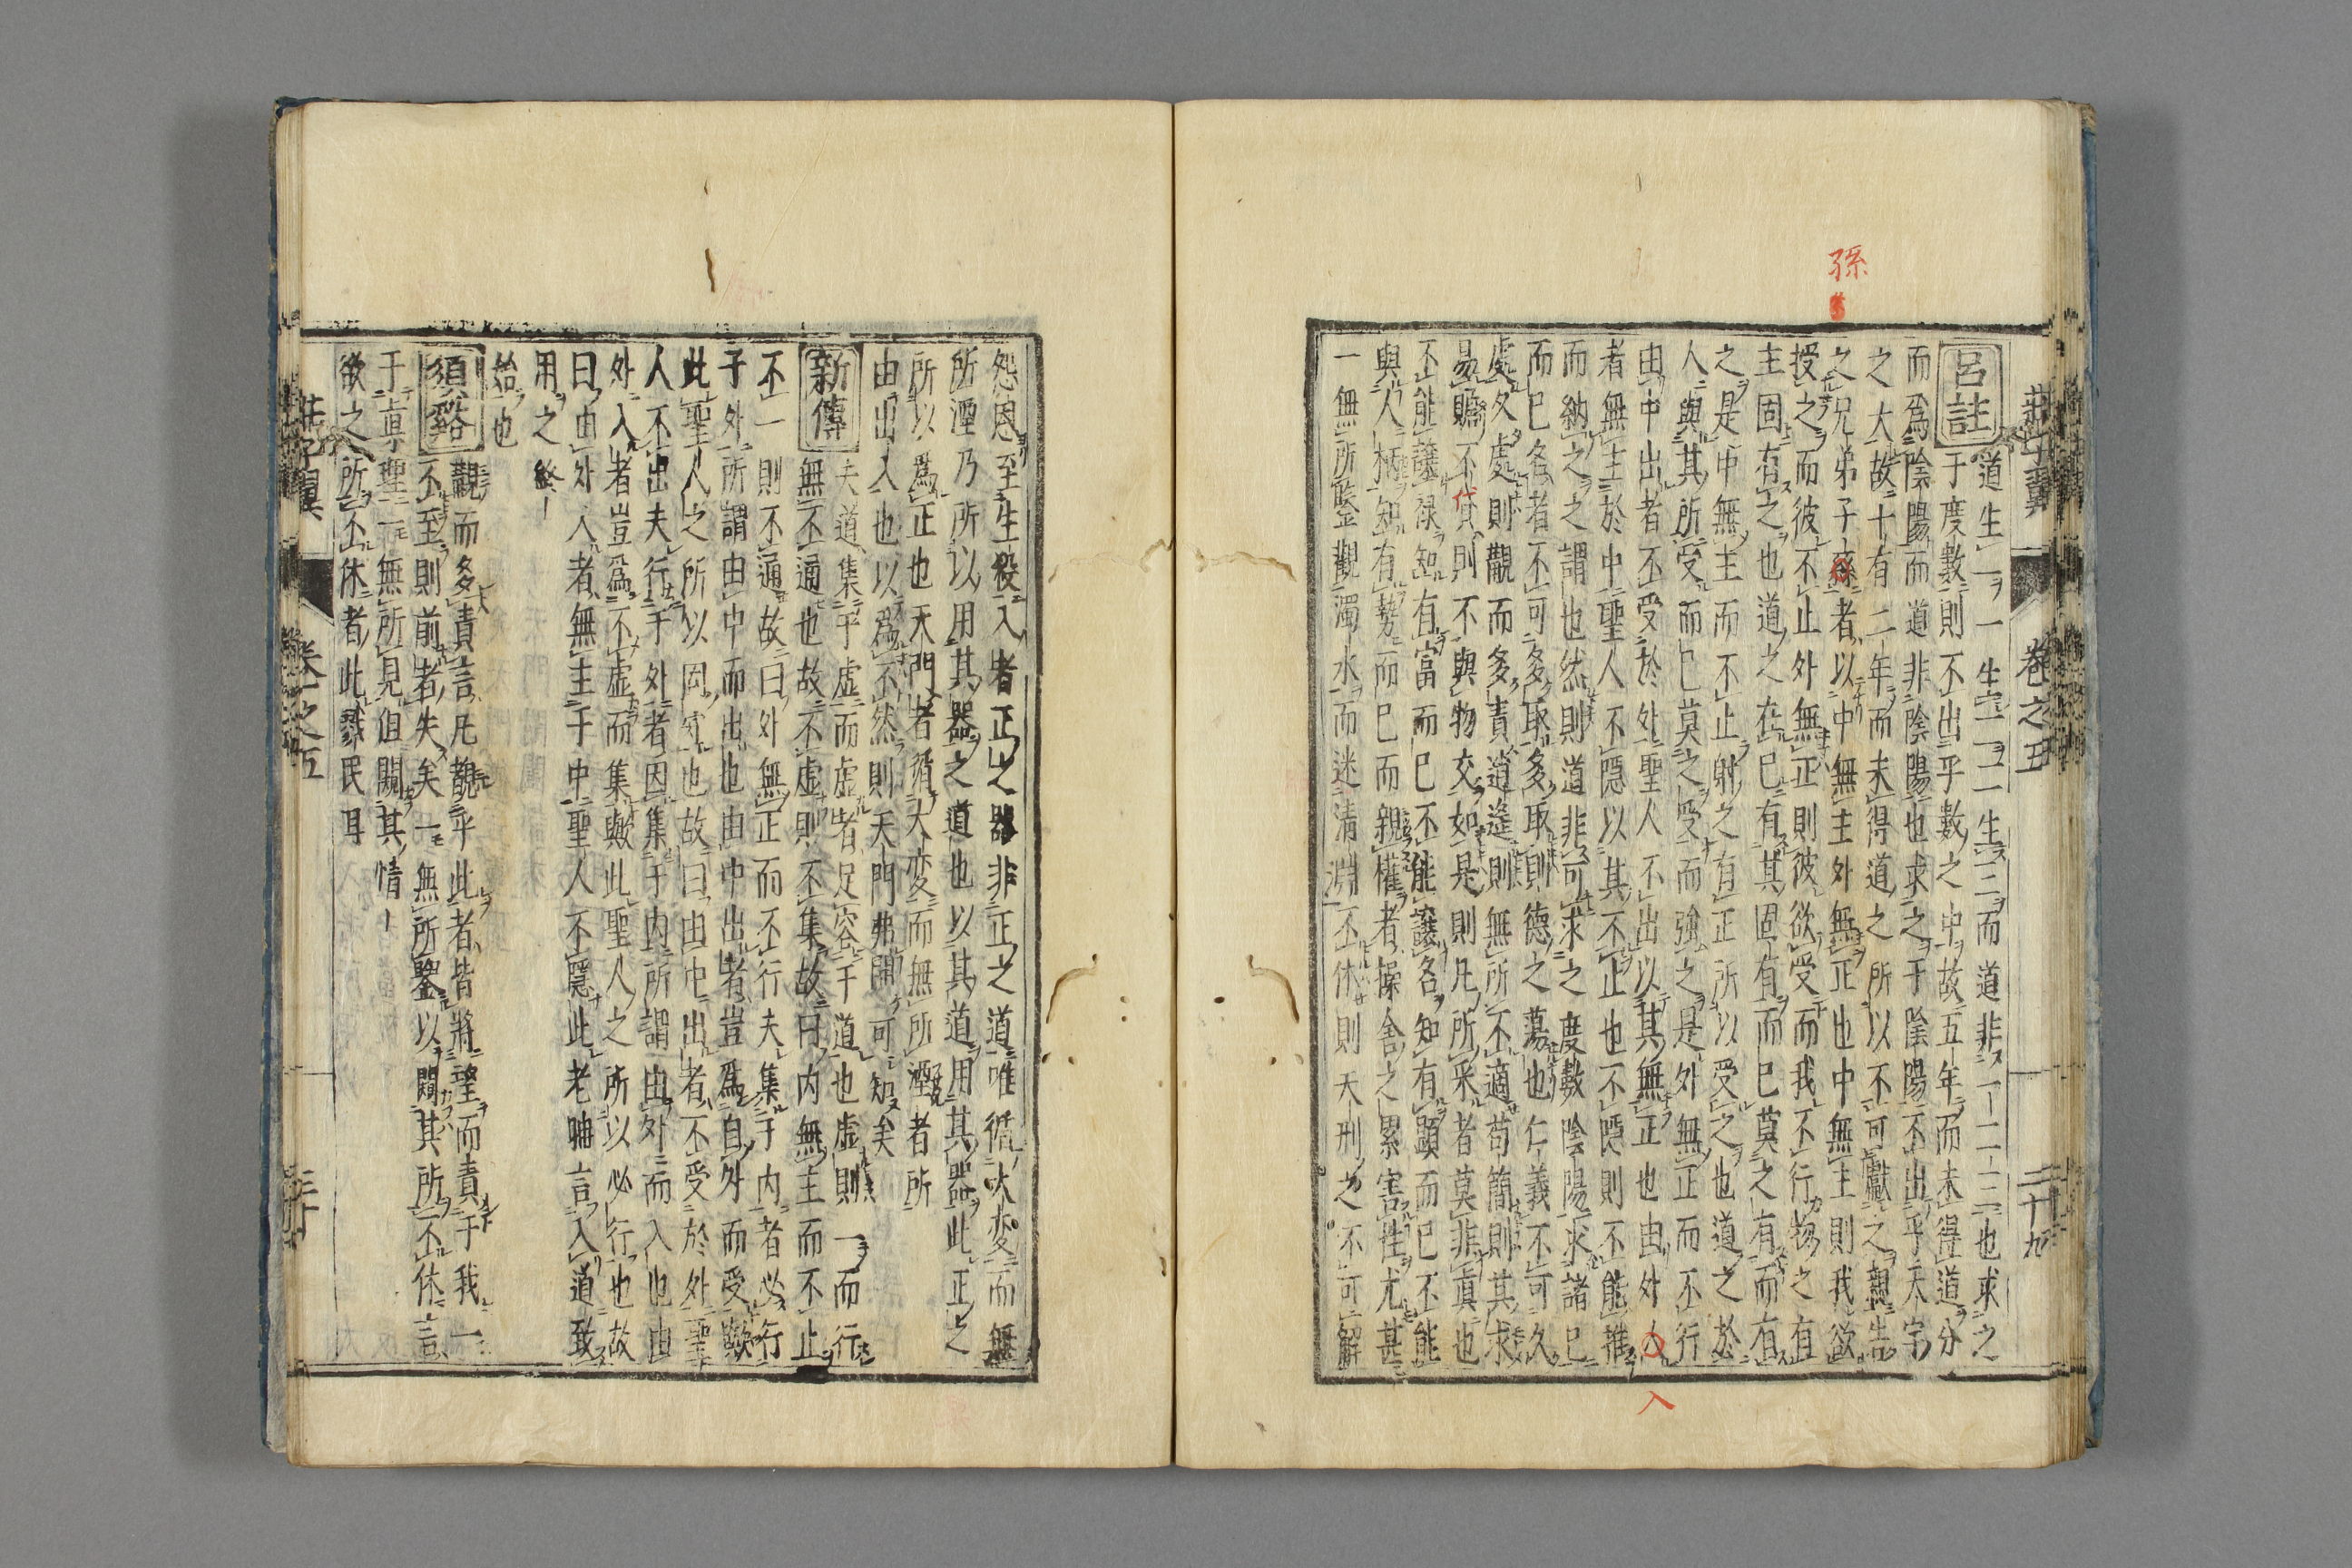 孫
莊子翼　卷之五　二十九
呂註
道生一一生二二生三而道非一二三也求之
于度數則不出乎數之中故五年而未得道分
而爲陰陽而道非陰陽也求之于陰陽不出乎大宗
之大故十有二年而未得道之所以不可獻之親告
之兄弟子孫者以中無主外無正也中無主則我欲
授之而彼不止外無正則彼欲受而我不行物之有
主固有之也道之在已有其固有而已莫之有而有
之是中無主而不止射之有正所以受之也道之於
人與其所受而已莫之受而強之是外無正而不行
由中出者不受於外聖人不出以其無正也由外入
者無主於中聖人不隱以其不止也不隱則不能推
而納之之謂也然則道非可求之度數陰陽求諸已
而已名者不可多取多取則德之蕩也仁義不可久
處久處則觀而多責逍遙則無所不適苟簡則其求
易贍不貸則不與物交如是則凡所采者莫非眞也
不能讓祿知有富而已不能讓名知有顯而已不能
與人柄知有勢而已而親權者操舍之累害性尤甚
一無所鑒觀濁水而迷清淵不休則天刑之不可解
入
怨恩至生殺八者正之器非正之道唯循大変而無
所湮乃所以用其器之道也以其道用其器此正之
所以爲正也天門者循大変而無所湮者所
由出入也以爲不然則天門弗開可知矣
新傳
夫道集乎虛而虛者足容于道也虛則一而行
無不通也故不虛則不集故曰内無主而不止
不一則不通故曰外無正而不行夫集于内者必行
子外所謂由中而出也由中出者豈爲自外而受歟
此聖人之所以固守也故曰由中出者不受於外聖
人不出夫行于外者因集于内所謂由外而入也由
外入者豈爲不虛而集歟此聖人之所以必行也故
曰由外入者無主于中聖人不隱此老聃言入道致
用之終
始也
須谿
觀而多責言凡覯乎此者皆將望而責于我一
不至則前者失矣一無所鑒以闚其所不休言
于眞聖一無所見但闚其情
欲之所不休者此戮民耳
莊子翼　卷之五　三十